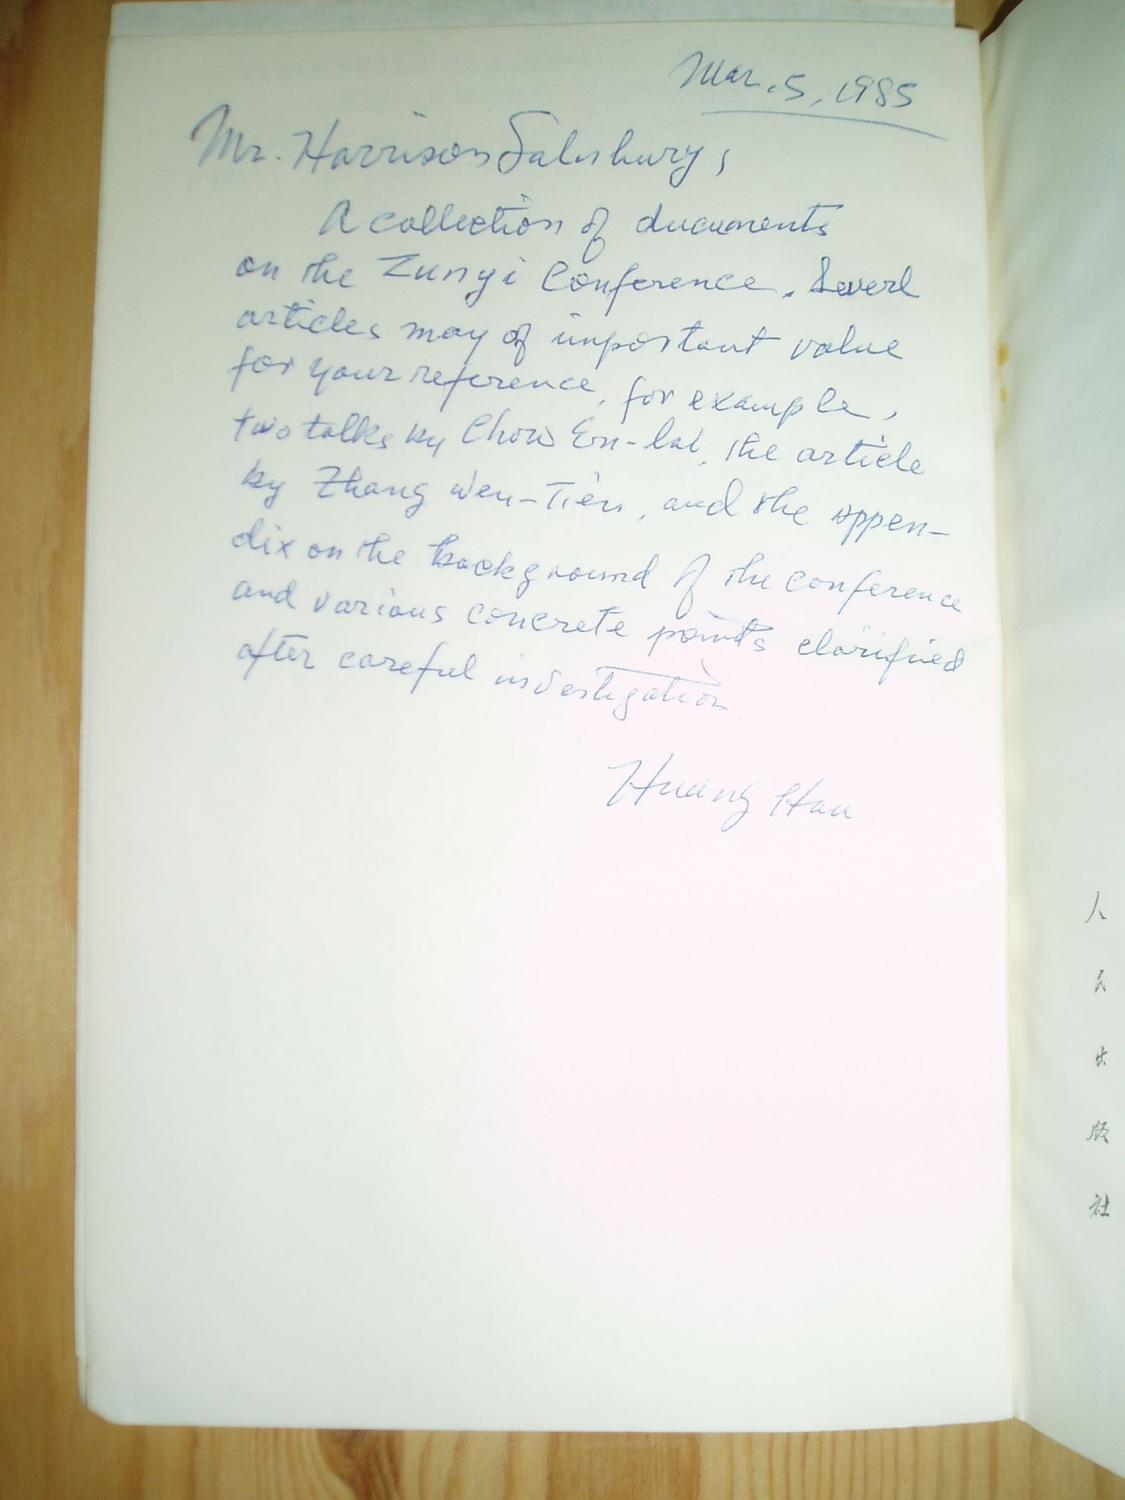 Mar. 5, 1985
Mr. Harrison Salisbury,
A collection of documents
on the Zunyi Conference. Severl
articles may of important value
for your reference, for example,
two talks by Chow En-lai, the article
by Zhang Wen-Tien, and the appen-
dix on the background of the conference
and various concrete points clarified
after careful investigation
Huang Hua
人民出版社